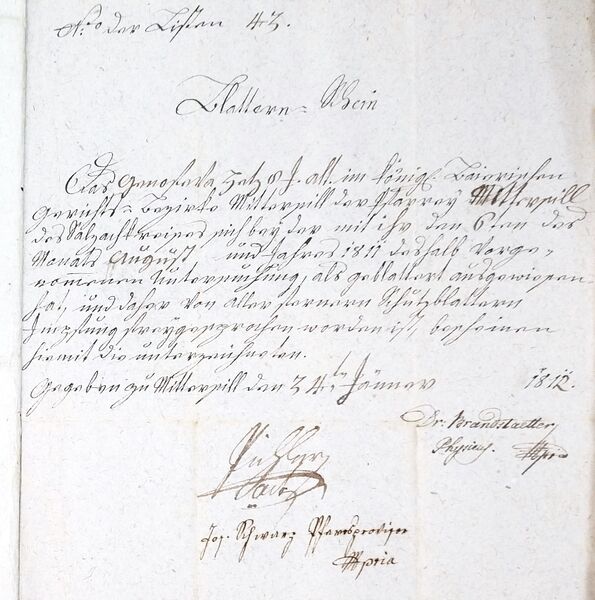 Nro der Listen 43.
Blattern = Schein
Das Genofefa 8 J. alt. im königl. Baierischen
Gerichts = Bezirke Mittersill der Pfarrey Mittersill
des Salzachkreises sich bey der mit ihr den 6ten des
Monats August und Jahres 1811 deshalb vorge„
nomenen Untersuchung, als geblattert ausgewiesen
hat, und daher von aller fernern Schutzblattern
Impfung freygesprochen worden ist, bescheinen
hiemit die unterzeichneten.
Gegeben zu Mittersill den 24t Jänner 1812.
Dr. Brandstaetter
Physicus. Mpria
Pichler
Jos. Schwarz Pfarrprovisor
Mpria